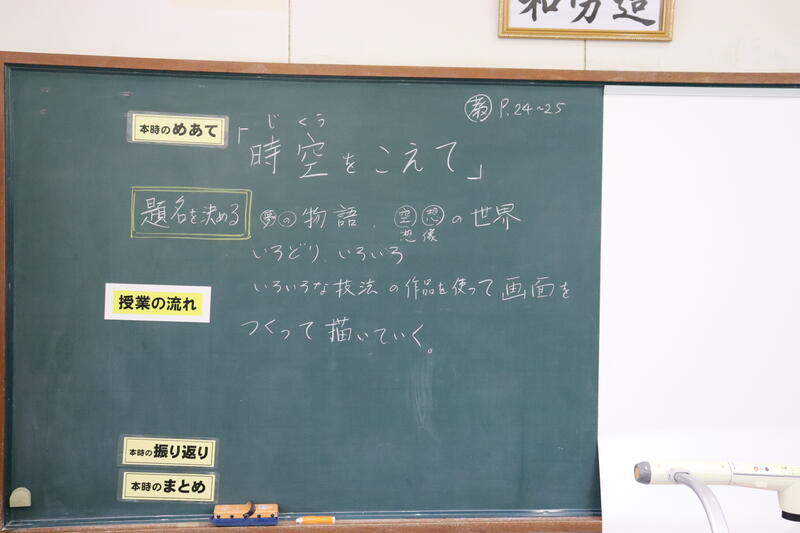 和労造
教 P.24~25
本時のめあて
じくう
「時空をこえて」
題名を決める 夢の物語、空想の世界
想像
いろどり、いろいろ
授業の流れ
いろいろな技法の作品を使って画面を
つくって描いていく。
本時の振り返り
本時のまとめ